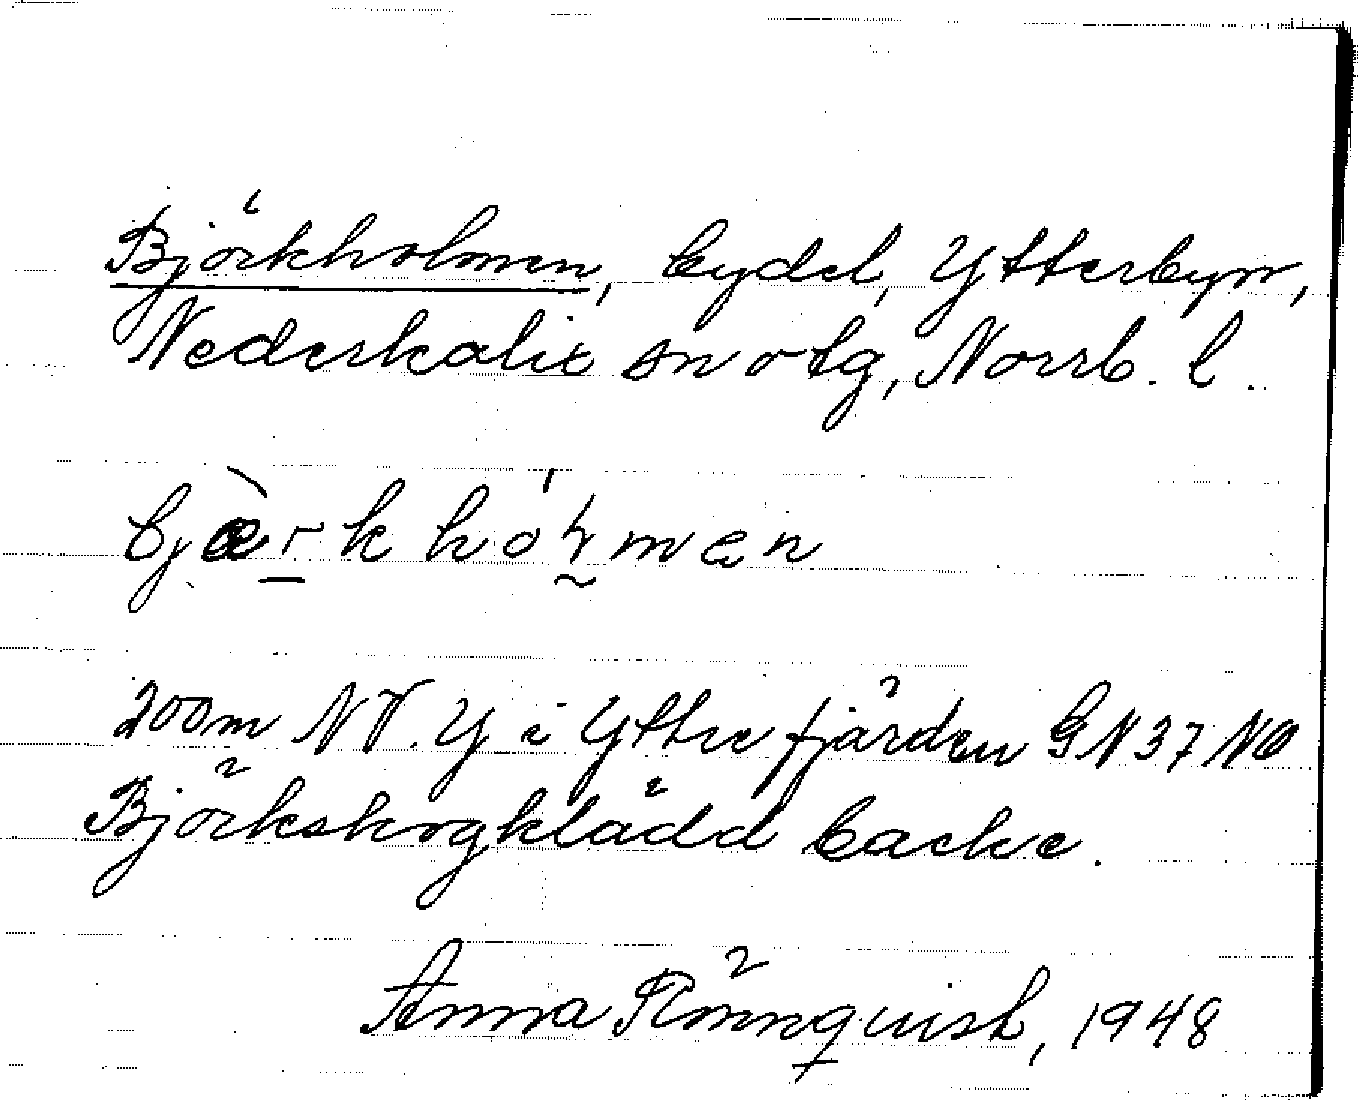 Björkholmen, bydel, Ytterbyn,
Nederkalix sn o tg, Norrb. l.
bjæ̀rk hóļmən
200m NV. Y i Yttrefjärden GN37NO
Björkskogklädd backe.
Anna Rönnquist, 1948